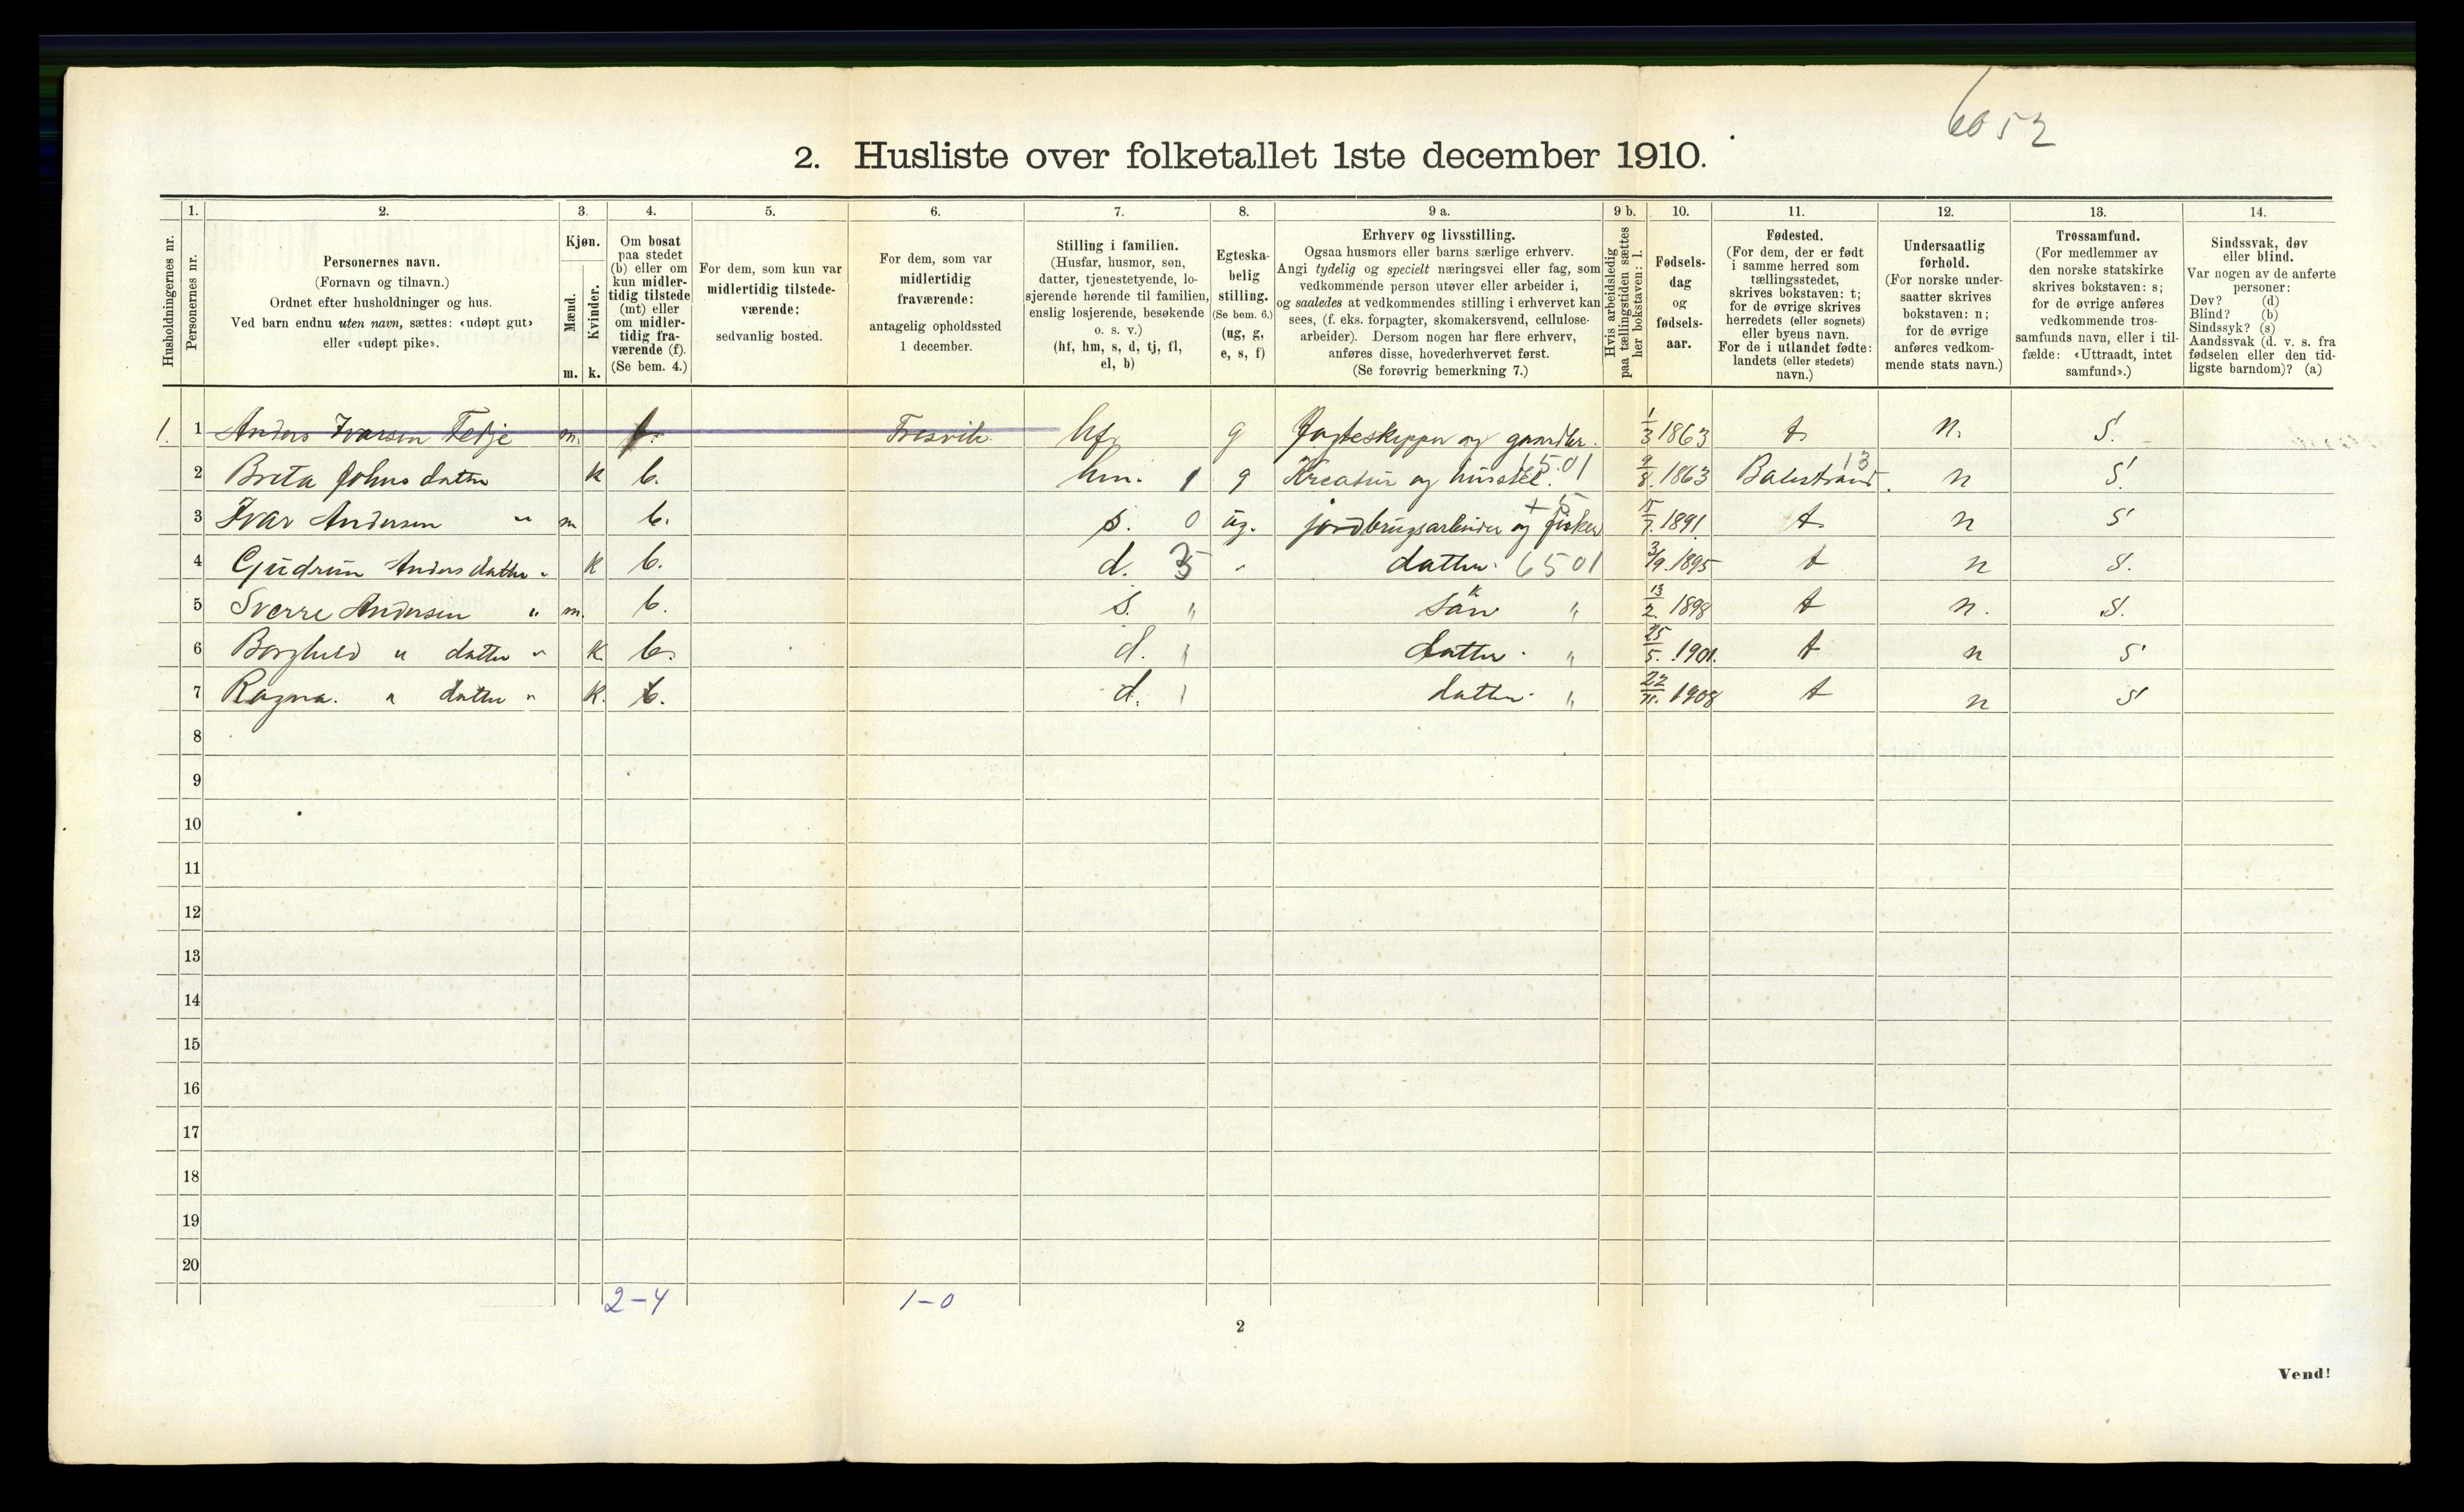 6052
2. Husliste over folketallet 1ste december 1910.
Husholdningernes nr.
1. Personernes nr.
2. Personernes navn. (Fornavn og tilnavn.) Ordnet efter husholdninger og hus. Ved barn endnu uten navn, sættes: «udøpt gut» eller «udøpt pike».
3. Kjøn. Mænd. m. Kvinder. k.
4. Om bosat paa stedet (b) eller om kun midlertidig tilstede (mt) eller om midlertidig fraværende (f). (Se bem. 4.)
5. For dem, som kun var midlertidig tilstedeværende: sedvanlig bosted.
6. For dem, som var midlertidig fraværende: antagelig opholdssted 1 december.
7. Stilling i familien. (Husfar, husmor, søn, datter, tjenestetyende, losjerende hørende til familien, enslig losjerende, besøkende o. s. v.) (hf, hm, s, d, tj, fl, el, b)
8. Egteskabelig stilling. (Se bem. 6.) (ug, g, e, s, f)
9 a. Erhverv og livsstilling. Ogsaa husmors eller barns særlige erhverv. Angi tydelig og specielt næringsvei eller fag, som vedkommende person utøver eller arbeider i, og saaledes at vedkommendes stilling i erhvervet kan sees, (f. eks. forpagter, skomakersvend, cellulosearbeider). Dersom nogen har flere erhverv, anføres disse, hovederhvervet først. (Se forøvrig bemerkning 7.)
9 b. Hvis arbeidsledig paa tællingstiden sættes her bokstaven: l.
10. Fødselsdag og fødselsaar.
11. Fødested. (For dem, der er født i samme herred som tællingsstedet, skrives bokstaven: t; for de øvrige skrives herredets (eller sognets) eller byens navn. For de i utlandet fødte: landets (eller stedets) navn.)
12. Undersaatlig forhold. (For norske undersaatter skrives bokstaven: n; for de øvrige anføres vedkommende stats navn.)
13. Trossamfund. (For medlemmer av den norske statskirke skrives bokstaven: s; for de øvrige anføres vedkommende trossamfunds navn, eller i tilfælde: «Uttraadt, intet samfund».)
14. Sindssvak, døv eller blind. Var nogen av de anførte personer: Døv? (d) Blind? (b) Sindssyk? (s) Aandssvak (d. v. s. fra fødselen eller den tidligste barndom)? (a)
1. 1 Anders Ivarsen Fetje m. f. Fresvik hf g Jagteskipper og gaardbr. 1/3 1863 t. n. S.
2 Brita Johnsdatter k b. hm. 1 g Kreatur og husstel. 6501 9/8. 1863 Balestrand. 13 n S.
3 Ivar Andersen " m b. s. 0 ug. jordbrugsarbeider og fisker + 5 15/7. 1891 t n S
4 Gudrun Andersdatter " k b. d. 3 - datter 6501 3/9. 1895 t n S.
5 Sverre Andersen " m. b. s. " søn k " 13/2. 1898 t n. S.
6 Borghild " datter " k b. d. 1 datter. " 25/5. 1901. t n S
7 Ragna. " datter " k. b. d. 1 datter " 22/11. 1908 t n S
8
9
10
11
12
13
14
15
16
17
18
19
20
2-4 1-0
2
Vend!